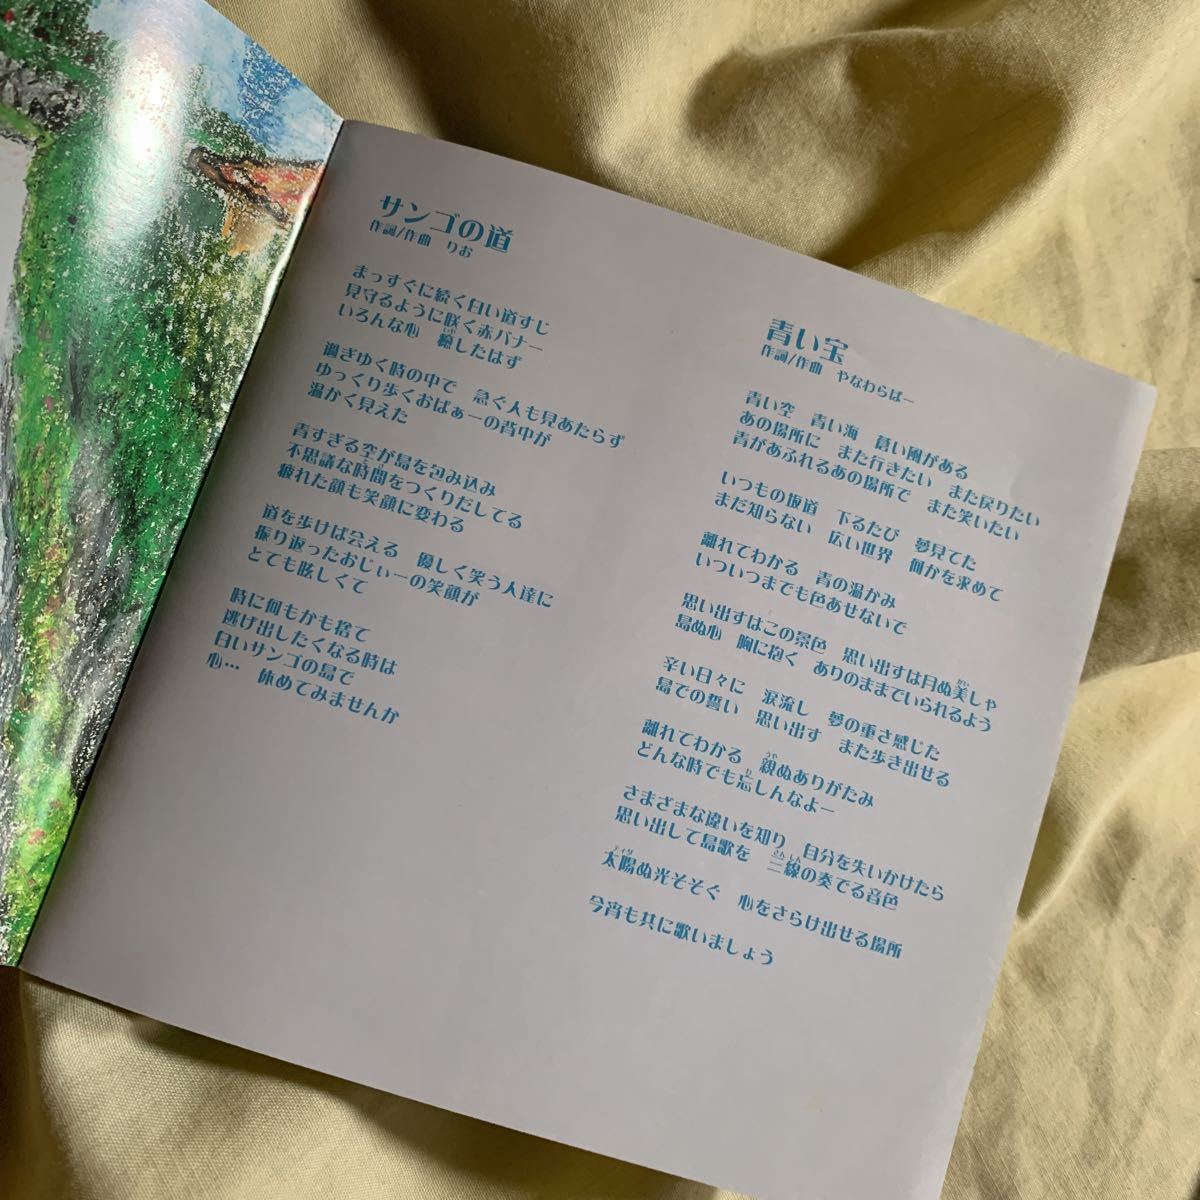 サンゴの道
作詞/作曲 りお
まっすぐに続く白い道すじ
見守るように咲く赤バナー
いろんな心 癒したはず
過ぎゆく時の中で 急ぐ人も見あたらず
ゆっくり歩くおばぁーの背中が
温かく見えた
青すぎる空が島を包み込み
不思議な時間をつくりだしてる
疲れた顔も笑顔に変わる
道を歩けば会える 優しく笑う人達に
振り返ったおじぃーの笑顔が
とても眩しくて
時に何もかも捨て
逃げ出したくなる時は
白いサンゴの島で
心… 休めてみませんか
青い宝
作詞/作曲 やなわらばー
青い空 青い海 蒼い風がある
あの場所に また行きたい また戻りたい
青があふれるあの場所で また笑いたい
いつもの坂道 下るたび 夢見てた
まだ知らない 広い世界 何かを求めて
離れてわかる 青の温かみ
いついつまでも色あせないで
思い出すはこの景色 思い出すは月ぬ美しゃ
島ぬ心 胸に抱く ありのままでいられるよう
辛い日々に 涙流し 夢の重さ感じた
島での誓い 思い出す また歩き出せる
離れてわかる 親ぬありがたみ
どんな時でも忘しんなよー
さまざまな違いを知り 自分を失いかけたら
思い出して島歌を 三線の奏でる音色
太陽ぬ光そそぐ 心をさらけ出せる場所
今宵も共に歌いましょう